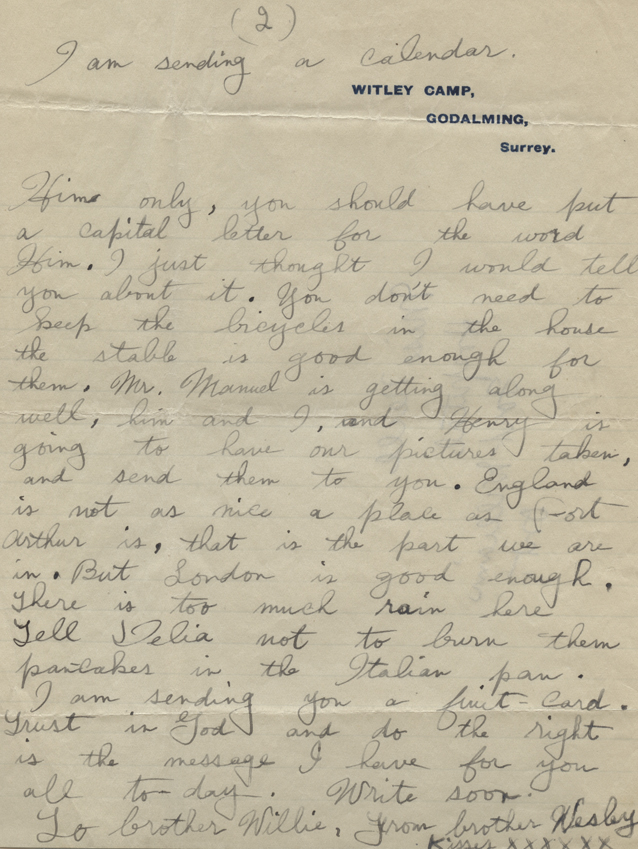 (2)
I am sending a calendar.
WITLEY CAMP,
GODALMING,
Surrey.
Him only, you should have put
a capital letter for the word
Him. I just thought I would tell
you about it. You don't need to
keep the bicycles in the house
the stable is good enough for
them. Mr. Manuel is getting along
well, him and I, and Henry is
going to have our pictures taken,
and send them to you. England
is not as nice a place as Fort
Arthur is, that is the part we are
in. But London is good enough.
There is too much rain here
Tell Delia not to burn them
pancakes in the Italian pan.
I am sending you a fruit-card.
Trust in God and do the right
is the message I have for you
all to-day. Write soon.
To brother Willie, From brother Wesley
Kisses XXXXXX